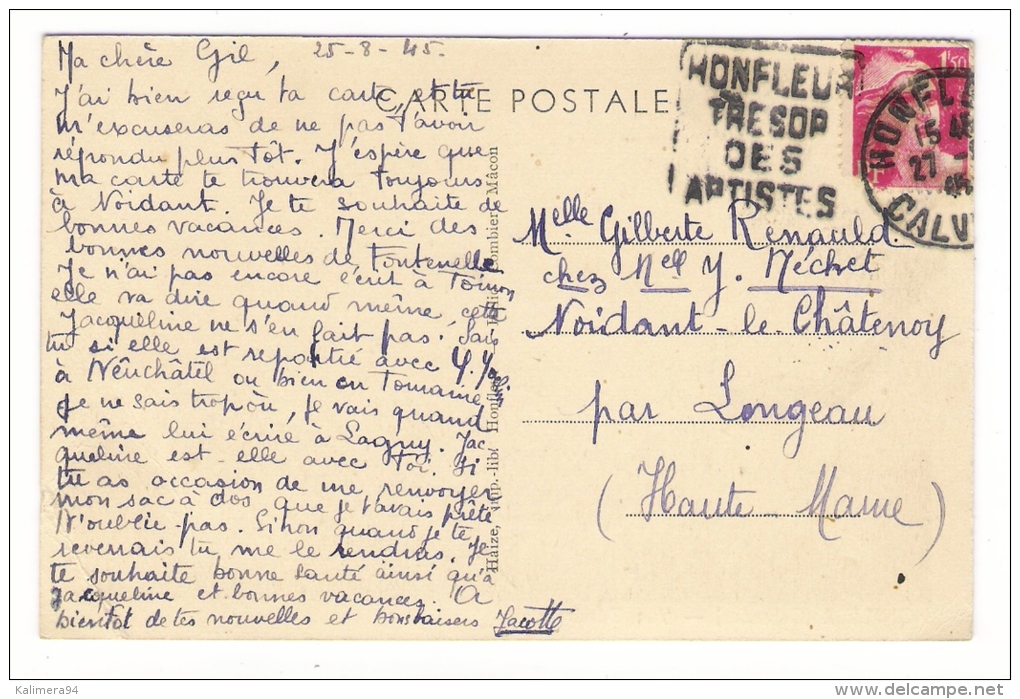 25-8-45.
Ma chère Gil,
J'ai bien reçu ta carte, et tu
m'excuseras de ne pas t'avoir
répondu plus tôt. J'espère que
ma carte te trouvera toujours
à Noidant. Je te souhaite de
bonnes vacances. Merci des
bonnes nouvelles de Fontenelle
Je n'ai pas encore écrit à Toinon
elle va dire quand même, cette
Jacqueline ne s'en fait pas. Sais
tu si elle est repartie avec Y.
à Neûchâtel ou bien en
je ne sais trop où, je vais quand
même lui écrire à Lagny. Jac
queline est-elle avec toi. Si
tu as occasion de me renvoyer
mon sac à dos que je t'avais prêté
N'oublie-pas. Sinon quand je te
reverrais tu me le rendras. Je
te souhaite bonne santé ainsi qu'à
Jacqueline et bonnes vacances. A
bientôt de tes nouvelles et bons baisers Jacotte
CARTE POSTALE
HONFLEUR
TRESOR
DES
ARTISTES
1f50
HONFLE
15
27
45
CALV
Melle Gilberte Renauld
chez Melle Y. Méchet
Noidant-le-Châtenoy
par Longeau
(Haute-Marne)
Combier Mâcon
Haize, Imp.-lib. Honfleur
Kalimera94
delcampe.net